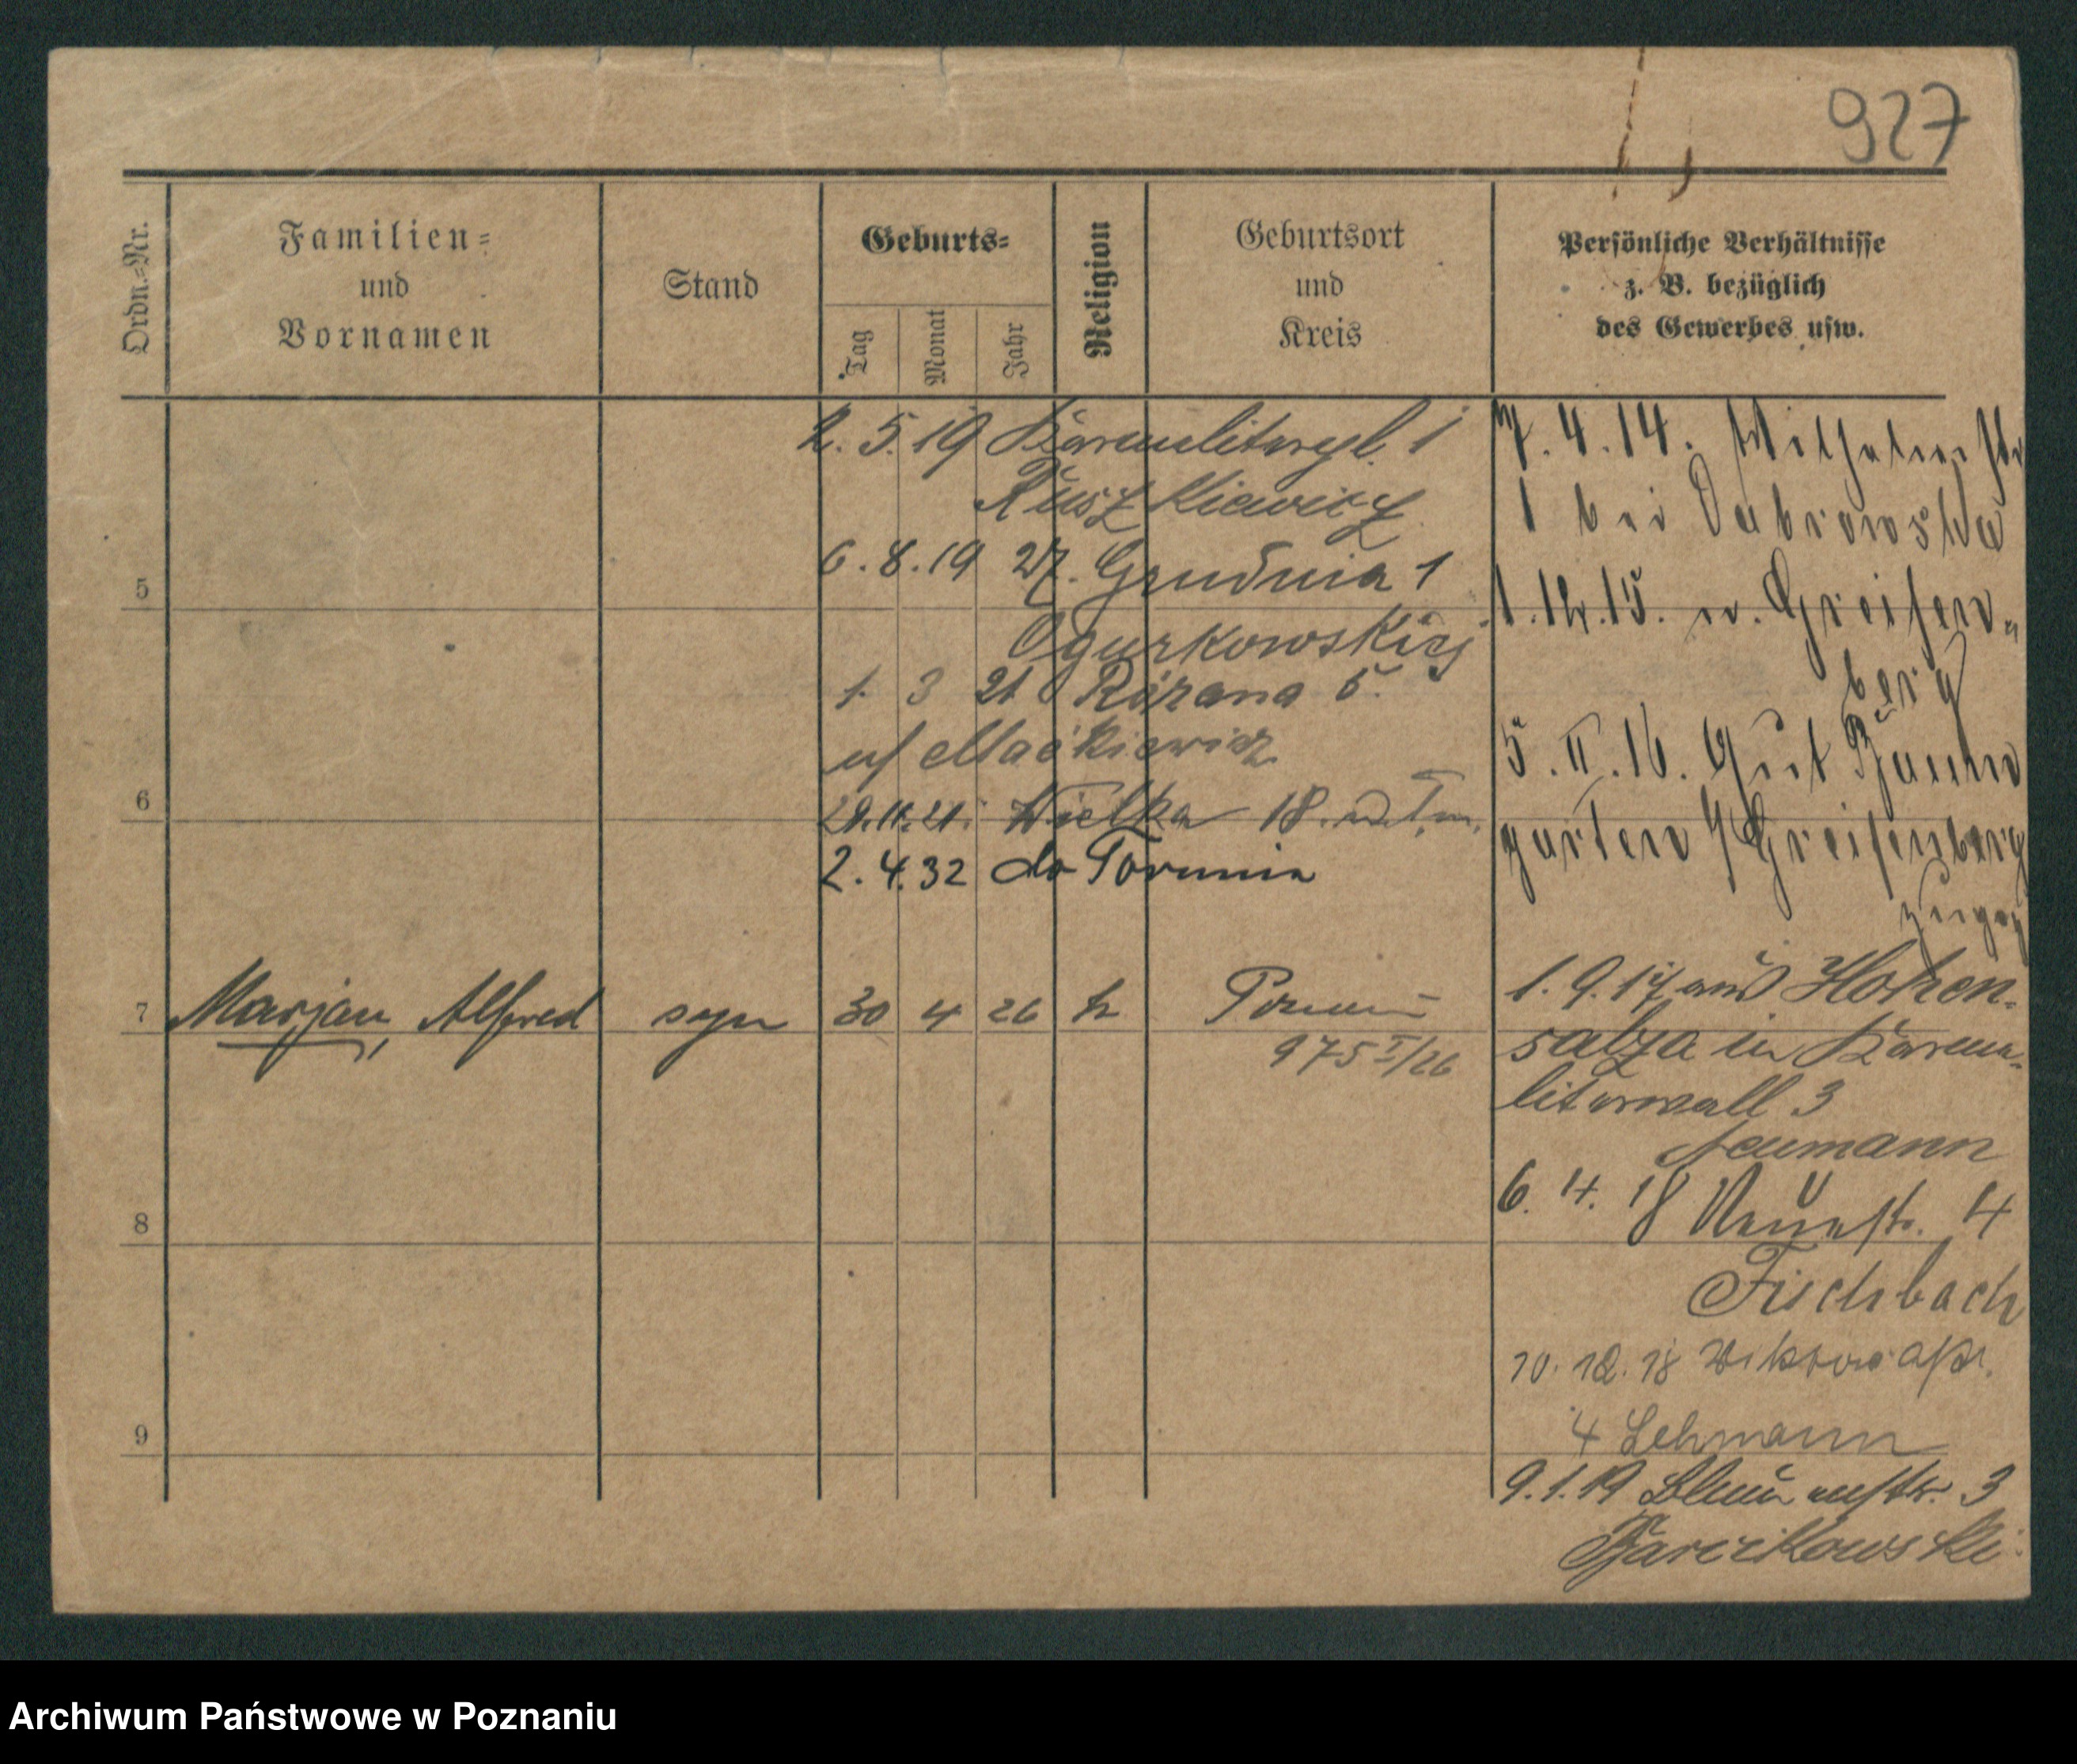 927
Ordn.=Nr.
Familien=
und
Vornamen
Stand
Geburts=
Tag
Monat
Jahr
Religion
Geburtsort
und
Kreis
Persönliche Verhältnisse
z. B. bezüglich
des Gewerbes usw.
2. 5. 19 Karmeliterwall 1
Ruszkiewicz
6. 8. 19 27. Grudnia 1
5
Ogurkowskiej
1. 3 21 Różana 5.
u/ Maćkiewicz
6
29.11.21. Wielka 18.
2. 4. 32 do Torunia
7
Marjan, Alfred
syn
30 4 26 k
Poznań
975 I/26
8
9
7. 4. 14. Wilhelmstr
1 bei Dabrowska
1. 12. 15. n. Greifen=
berg
5. II. 16. Gut Baum
garten / Greifenberg
zugez
1. 9. 17 aus Hohen=
salza in Karme=
literwall 3
Neumann
6. 4. 18 Neuestr. 4
Fischbach
10. 12. 18 Viktoriastr.
4 Lehmann
9. 1. 19 Blumenstr. 3
Barcikowski
Archiwum Państwowe w Poznaniu